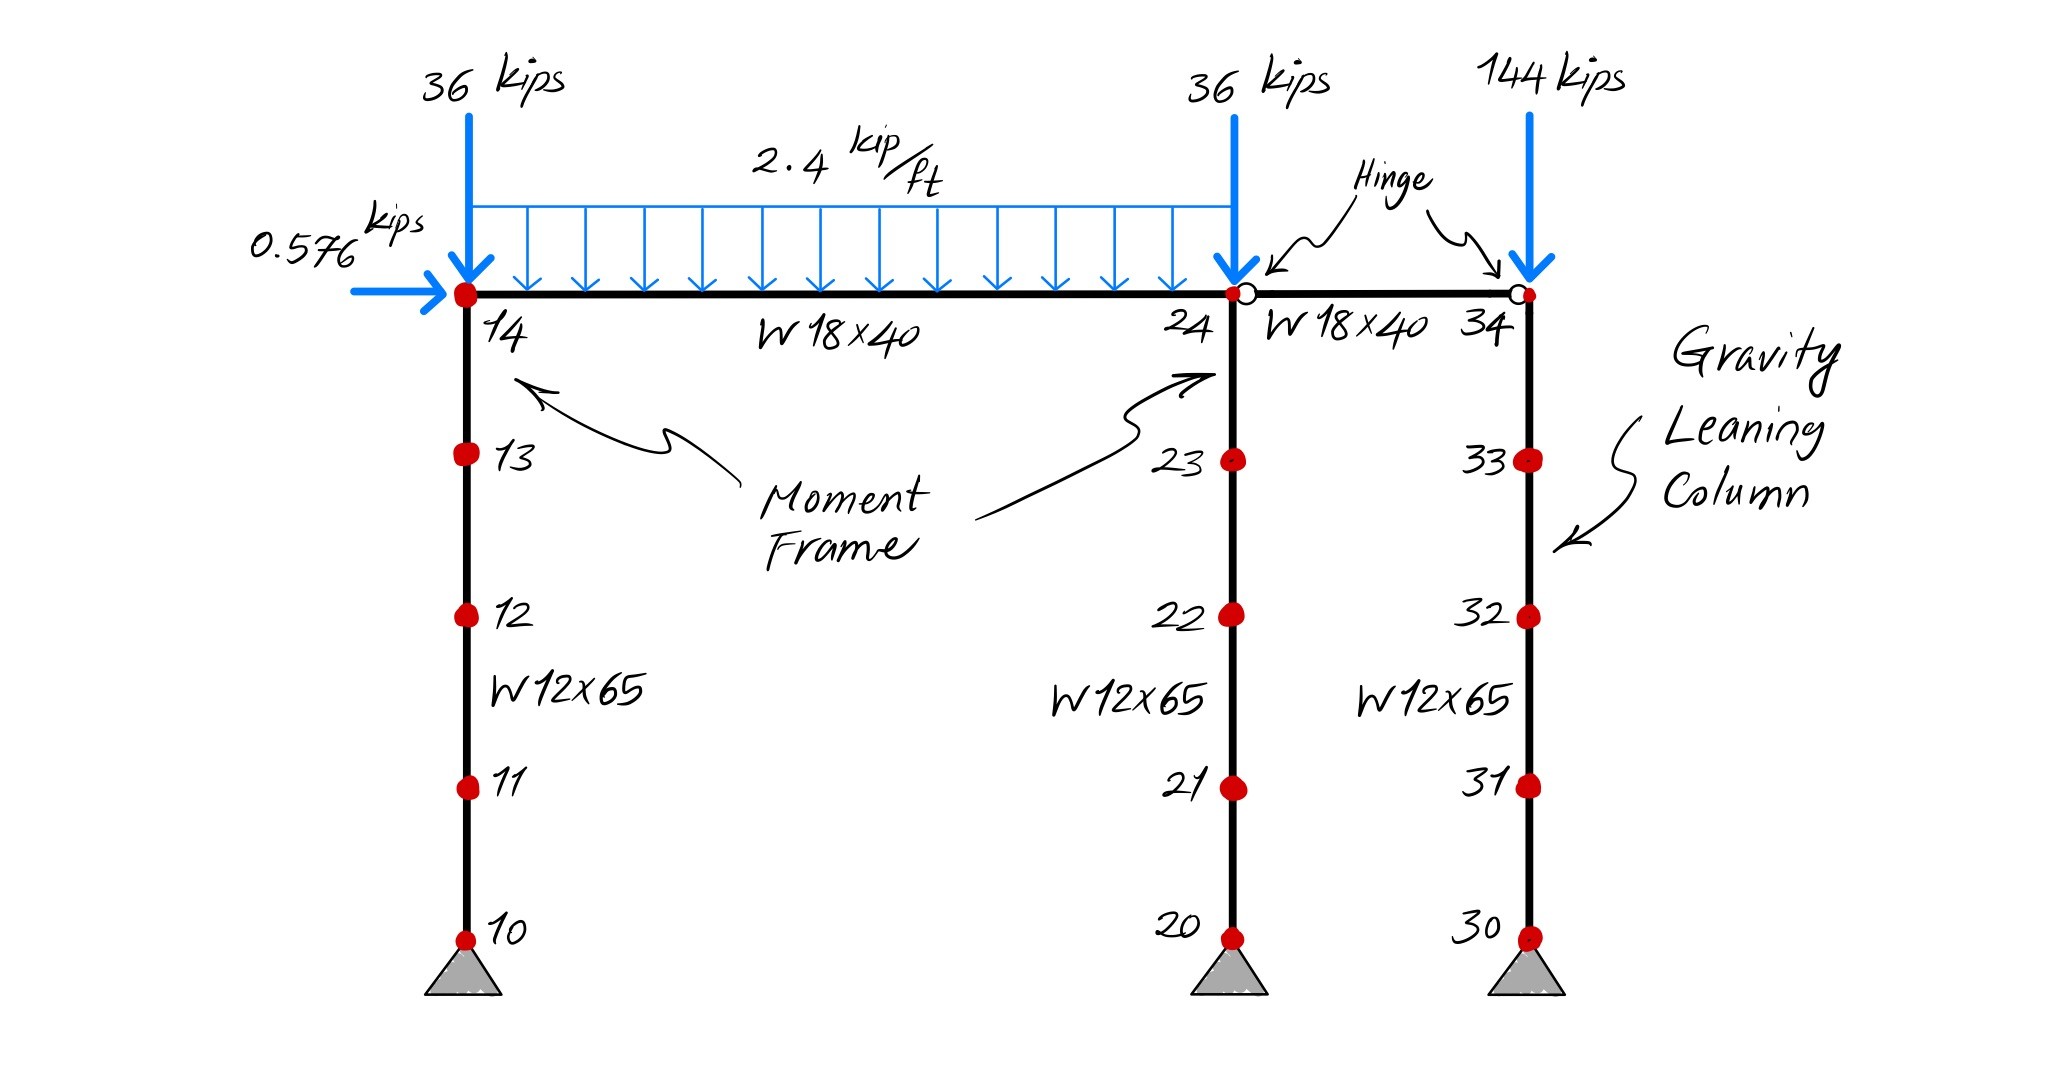 36 kips
36 kips
144 kips
2.4 kip/ft
Hinge
0.576 kips
14
W18x40
24
W18x40
34
Gravity
Leaning
Column
13
Moment
Frame
23
33
12
22
32
W12x65
W12x65
W12x65
11
21
31
10
20
30